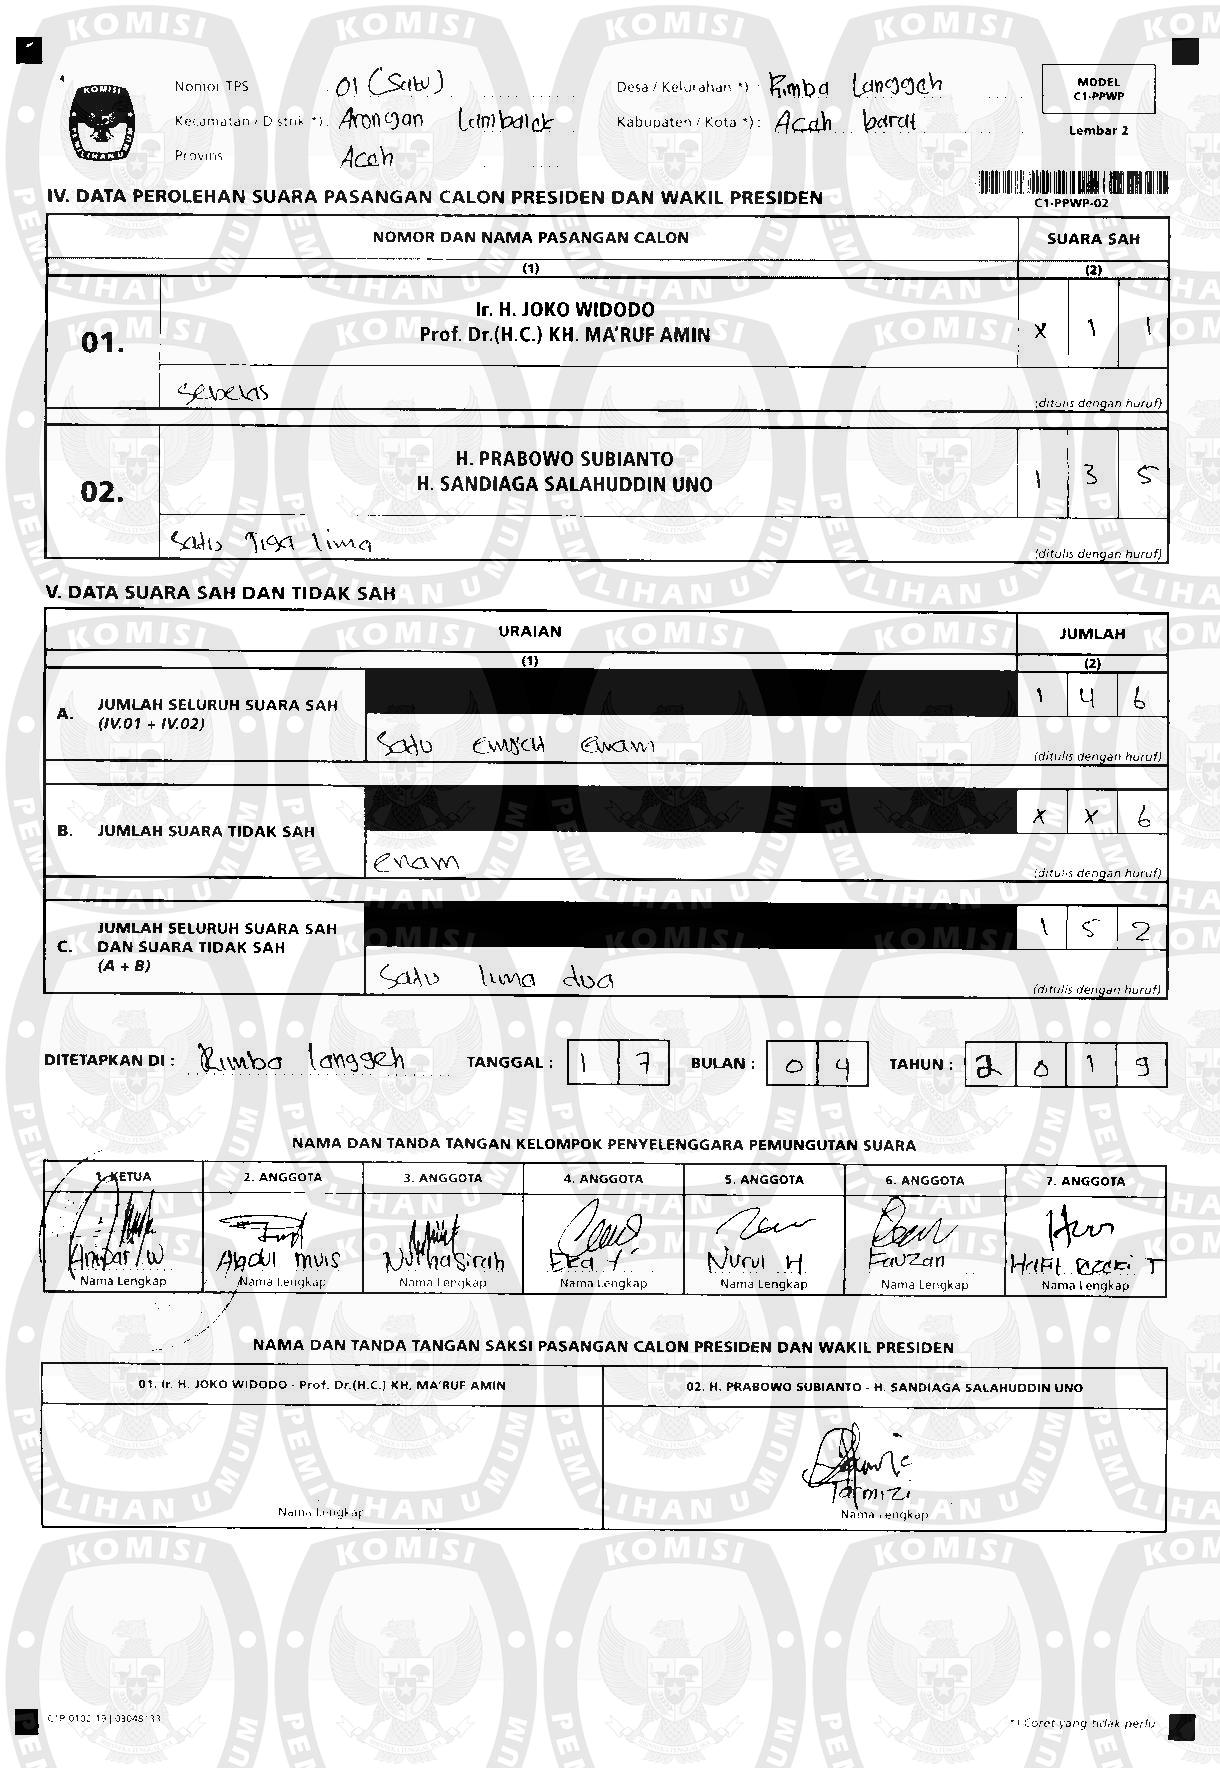 Nomor TPS 01 (Satu) Desa / Kelurahan *) : Rimba Langgeh
MODEL
C1-PPWP
Kecamatan / Distrik *) : Arongan Lambalek Kabupaten / Kota *) : Aceh barat
Lembar 2
Provinsi Aceh
IV. DATA PEROLEHAN SUARA PASANGAN CALON PRESIDEN DAN WAKIL PRESIDEN
C1-PPWP-02
NOMOR DAN NAMA PASANGAN CALON SUARA SAH
(1) (2)
01. Ir. H. JOKO WIDODO
Prof. Dr.(H.C.) KH. MA'RUF AMIN X 1 1
Sebelas
(ditulis dengan huruf)
02. H. PRABOWO SUBIANTO
H. SANDIAGA SALAHUDDIN UNO 1 3 5
Satu Tiga lima
(ditulis dengan huruf)
V. DATA SUARA SAH DAN TIDAK SAH
URAIAN JUMLAH
(1) (2)
A. JUMLAH SELURUH SUARA SAH
(IV.01 + IV.02) 1 4 6
Satu empat enam
(ditulis dengan huruf)
B. JUMLAH SUARA TIDAK SAH X X 6
enam
(ditulis dengan huruf)
C. JUMLAH SELURUH SUARA SAH
DAN SUARA TIDAK SAH
(A + B) 1 5 2
Satu lima dua
(ditulis dengan huruf)
DITETAPKAN DI : Rimba langgeh TANGGAL : 1 7 BULAN : 0 4 TAHUN : 2 0 1 9
NAMA DAN TANDA TANGAN KELOMPOK PENYELENGGARA PEMUNGUTAN SUARA
1. KETUA 2. ANGGOTA 3. ANGGOTA 4. ANGGOTA 5. ANGGOTA 6. ANGGOTA 7. ANGGOTA
Abdul muis Nurhasirah Eka Y. Nurul H Fauzan
Nama Lengkap Nama Lengkap Nama Lengkap Nama Lengkap Nama Lengkap Nama Lengkap Nama Lengkap
NAMA DAN TANDA TANGAN SAKSI PASANGAN CALON PRESIDEN DAN WAKIL PRESIDEN
01. Ir. H. JOKO WIDODO - Prof. Dr.(H.C.) KH. MA'RUF AMIN 02. H. PRABOWO SUBIANTO - H. SANDIAGA SALAHUDDIN UNO
Tarmizi
Nama Lengkap Nama Lengkap
*) Coret yang tidak perlu